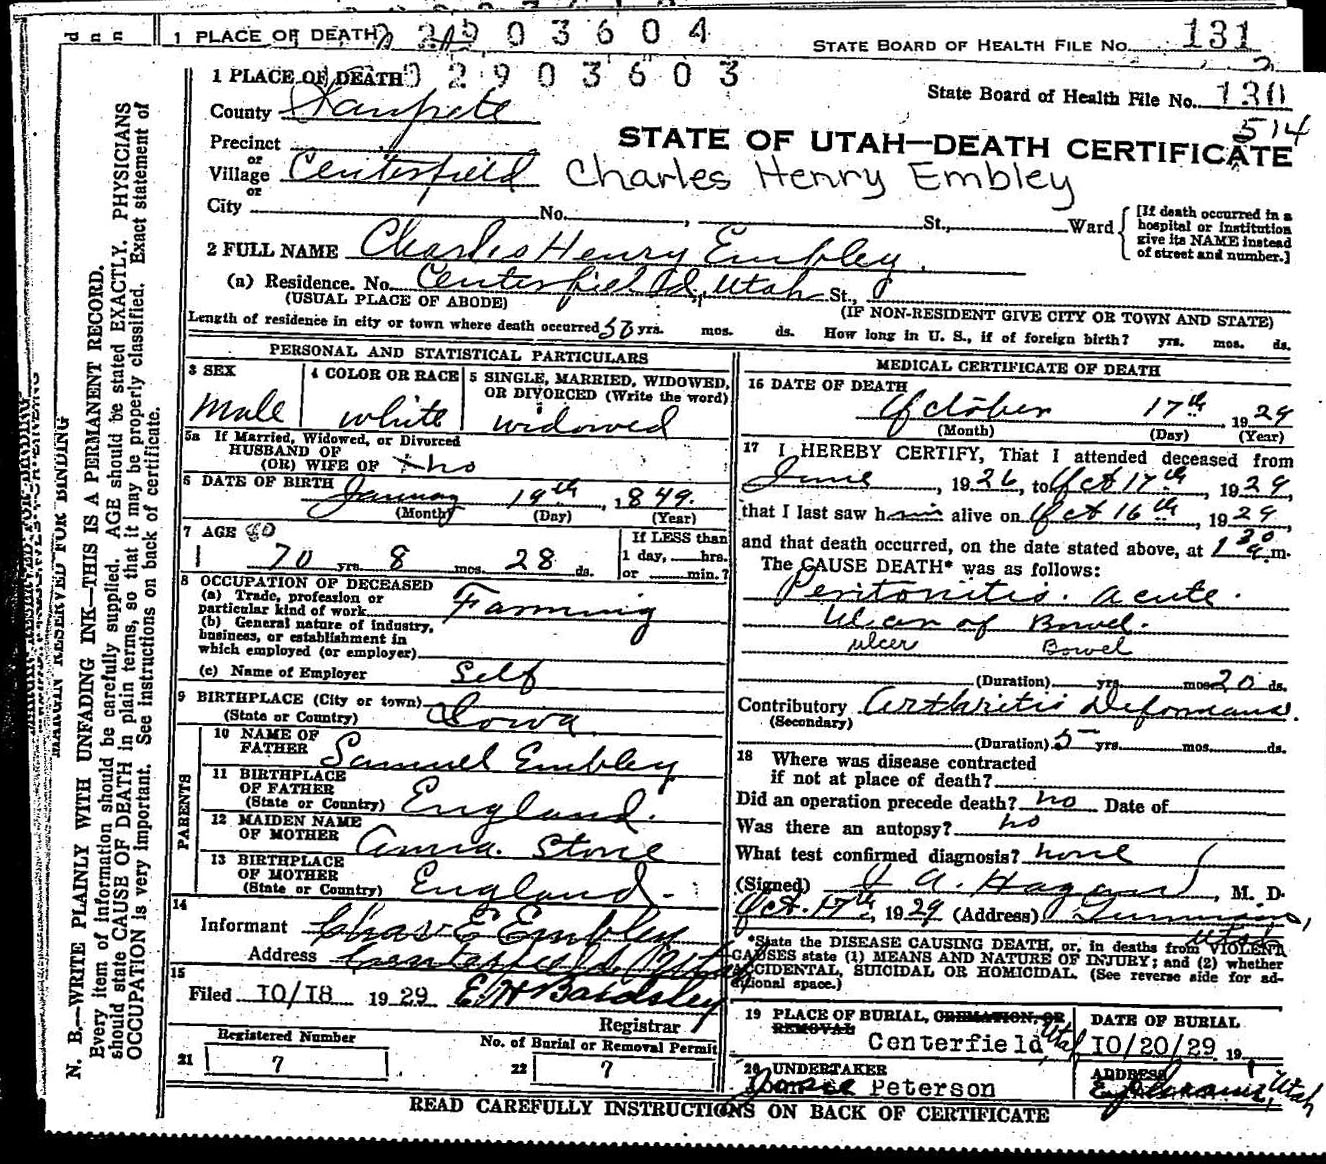 1 PLACE OF DEATH 2903604 STATE BOARD OF HEALTH FILE NO. 131
1 PLACE OF DEATH 02903603 State Board of Health File No. 130
514
County Sanpete
STATE OF UTAH—DEATH CERTIFICATE
Precinct
or
Village Centerfield Charles Henry Embley
or
City No. , St., Ward
[If death occurred in a
hospital or institution
give its NAME instead
of street and number.]
2 FULL NAME Charles Henry Embley.
(a) Residence. No. Centerfield, Utah St.,
(USUAL PLACE OF ABODE) (IF NON-RESIDENT GIVE CITY OR TOWN AND STATE)
Length of residence in city or town where death occurred yrs. mos. ds. How long in U. S., if of foreign birth? yrs. mos. ds.
PERSONAL AND STATISTICAL PARTICULARS
3 SEX 4 COLOR OR RACE 5 SINGLE, MARRIED, WIDOWED,
OR DIVORCED (Write the word)
Male white widowed
5a If Married, Widowed, or Divorced
HUSBAND OF
(OR) WIFE OF no
6 DATE OF BIRTH January 19th, 1849.
(Month) (Day) (Year)
7 AGE 80
70 yrs. 8 mos. 28 ds.
If LESS than
1 day, hrs.
or min.?
8 OCCUPATION OF DECEASED
(a) Trade, profession or
particular kind of work Farming
(b) General nature of industry,
business, or establishment in
which employed (or employer)
(c) Name of Employer Self
9 BIRTHPLACE (City or town)
(State or Country) Iowa
PARENTS
10 NAME OF
FATHER Samuel Embley
11 BIRTHPLACE
OF FATHER
(State or Country) England.
12 MAIDEN NAME
OF MOTHER Anna. Stone
13 BIRTHPLACE
OF MOTHER
(State or Country) England.
14
Informant Chas E Embley
Address Centerfield, Utah
15
Filed 10/18 1929 E H Bardsley
Registrar
Registered Number No. of Burial or Removal Permit
21 7 22 7
MEDICAL CERTIFICATE OF DEATH
16 DATE OF DEATH
October 17th 1929
(Month) (Day) (Year)
17 I HEREBY CERTIFY, That I attended deceased from
June, 1926, to Oct 17th, 1929,
that I last saw him alive on Oct 16th, 1929,
and that death occurred, on the date stated above, at 1 30 a.m.
The CAUSE DEATH* was as follows:
Peritonitis. acute.
Ulcer of Bowel.
ulcer Bowel
(Duration) yrs. mos. 20 ds.
Contributory Arthritis Deformans.
(Secondary)
(Duration) 5 yrs. mos. ds.
18 Where was disease contracted
if not at place of death?
Did an operation precede death? no Date of
Was there an autopsy? no
What test confirmed diagnosis? none
(Signed) A. Hagan, M. D.
Oct. 17th, 1929 (Address) Gunnison,
Utah
*State the DISEASE CAUSING DEATH, or, in deaths from VIOLENT
CAUSES state (1) MEANS AND NATURE OF INJURY; and (2) whether
ACCIDENTAL, SUICIDAL OR HOMICIDAL. (See reverse side for ad-
ditional space.)
19 PLACE OF BURIAL, CREMATION, OR
REMOVAL
Centerfield, Utah
DATE OF BURIAL
10/20/29 19
20 UNDERTAKER
Peterson
ADDRESS
Utah
READ CAREFULLY INSTRUCTIONS ON BACK OF CERTIFICATE
MARGIN RESERVED FOR BINDING
N. B.—WRITE PLAINLY WITH UNFADING INK—THIS IS A PERMANENT RECORD.
Every item of information should be carefully supplied. AGE should be stated EXACTLY. PHYSICIANS
should state CAUSE OF DEATH in plain terms, so that it may be properly classified. Exact statement of
OCCUPATION is very important. See instructions on back of certificate.